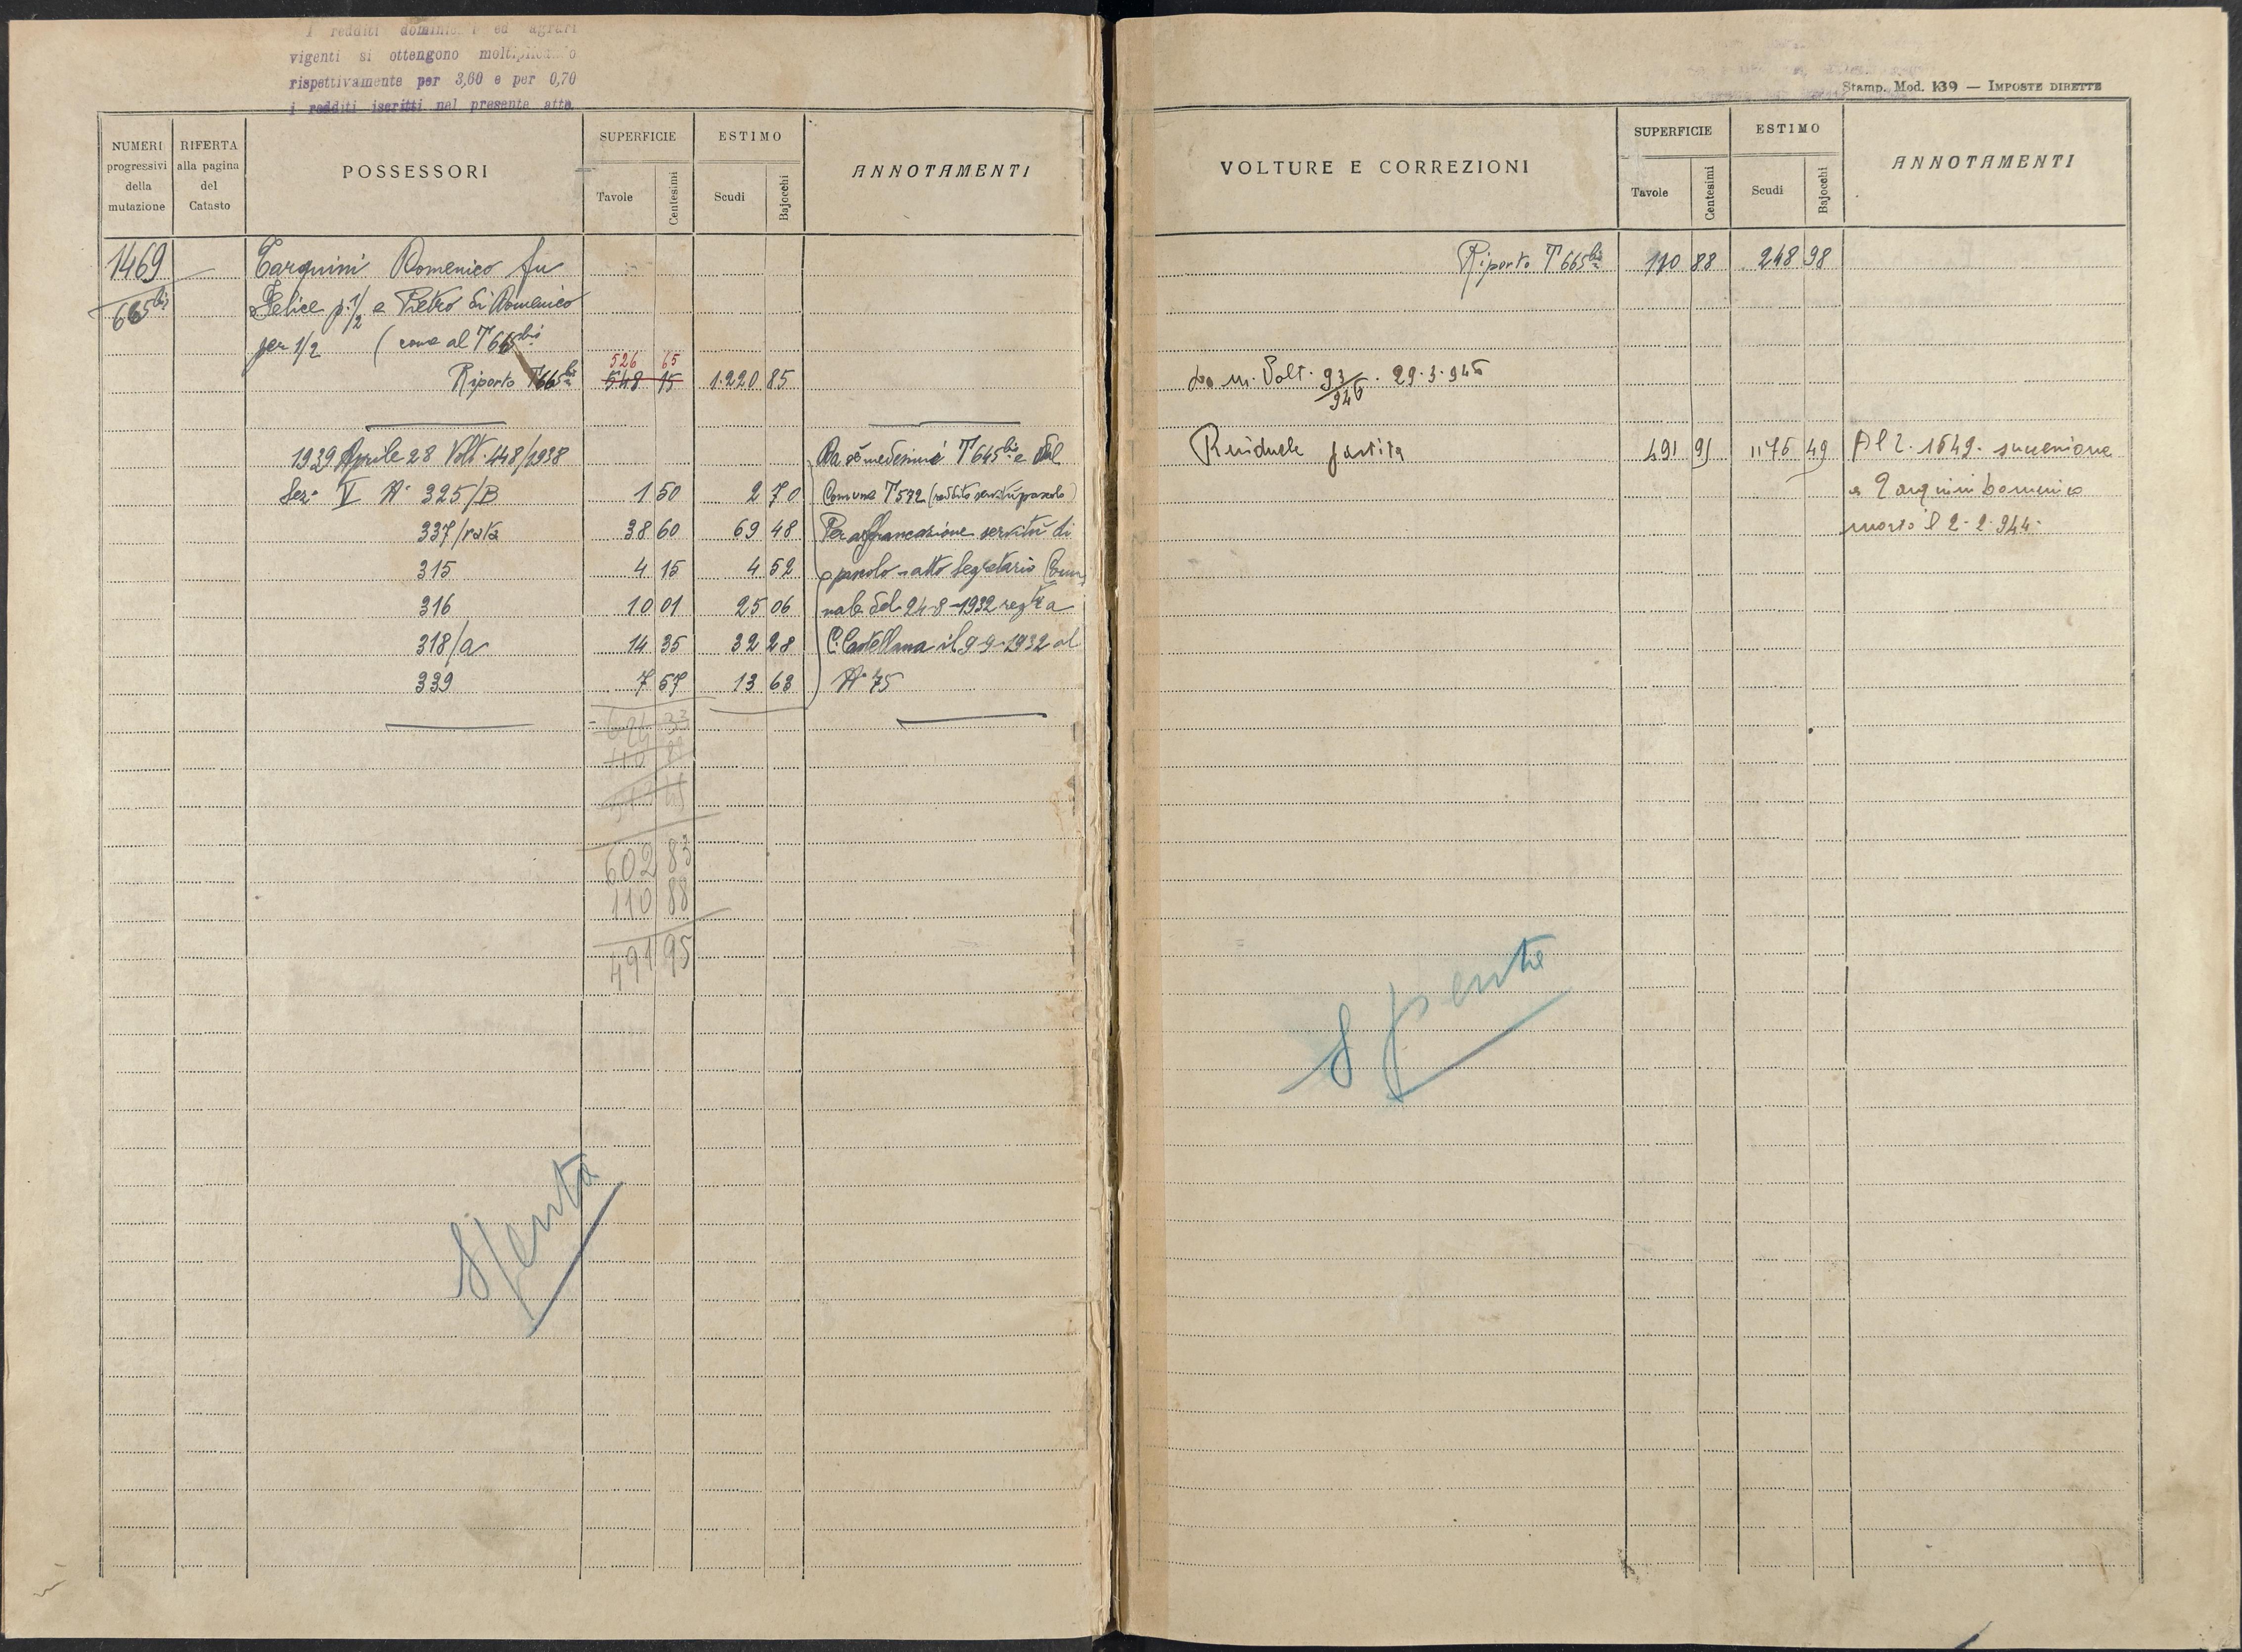 I redditi dominic ed agrari
vigenti si ottengono
rispettivamente per 3,60 e per 0,70
i redditi iscritti nel presente atto.
NUMERI
progressivi
della
mutazione
RIFERTA
alla pagina
del
Catasto
POSSESSORI
SUPERFICIE
Tavole
Centesimi
ESTIMO
Scudi
Bajocchi
ANNOTAMENTI
1469 —
665bis
Tarquini Domenico fu
Felice p. 1/2 e Pietro di Domenico
per 1/2 (come al T 665bis
526 65
Riporto T 665bis 548 15 1220 85
1939 Aprile 28 Volt. 448/1938
Sez. V N. 325/B 1 50 2 70
337/rata 38 60 69 48
315 4 15 4 52
316 10 01 25 06
318/a 14 35 32 28
339 7 57 13 63
Da sé medesimi T 665bis e dal
Comune T 572
Per affrancazione servitù di
pascolo - atto Segretario Comu
nale del 24-8-1932 reg.to a
C. Castellana il 9-9-1932 al
N. 75
624 33
110 88
602 83
110 88
491 95
Spenta
Stamp. Mod. 139 — IMPOSTE DIRETTE
VOLTURE E CORREZIONI
SUPERFICIE
Tavole
Centesimi
ESTIMO
Scudi
Bajocchi
ANNOTAMENTI
Riporto T 665bis 110 88 248 98
Volt. 93/946. 29.3.946
Residuale partita 491 95 1175 49
Al 2. 1649. successione
a Tarquini Domenico
morto il 2-2-944-
Spenta